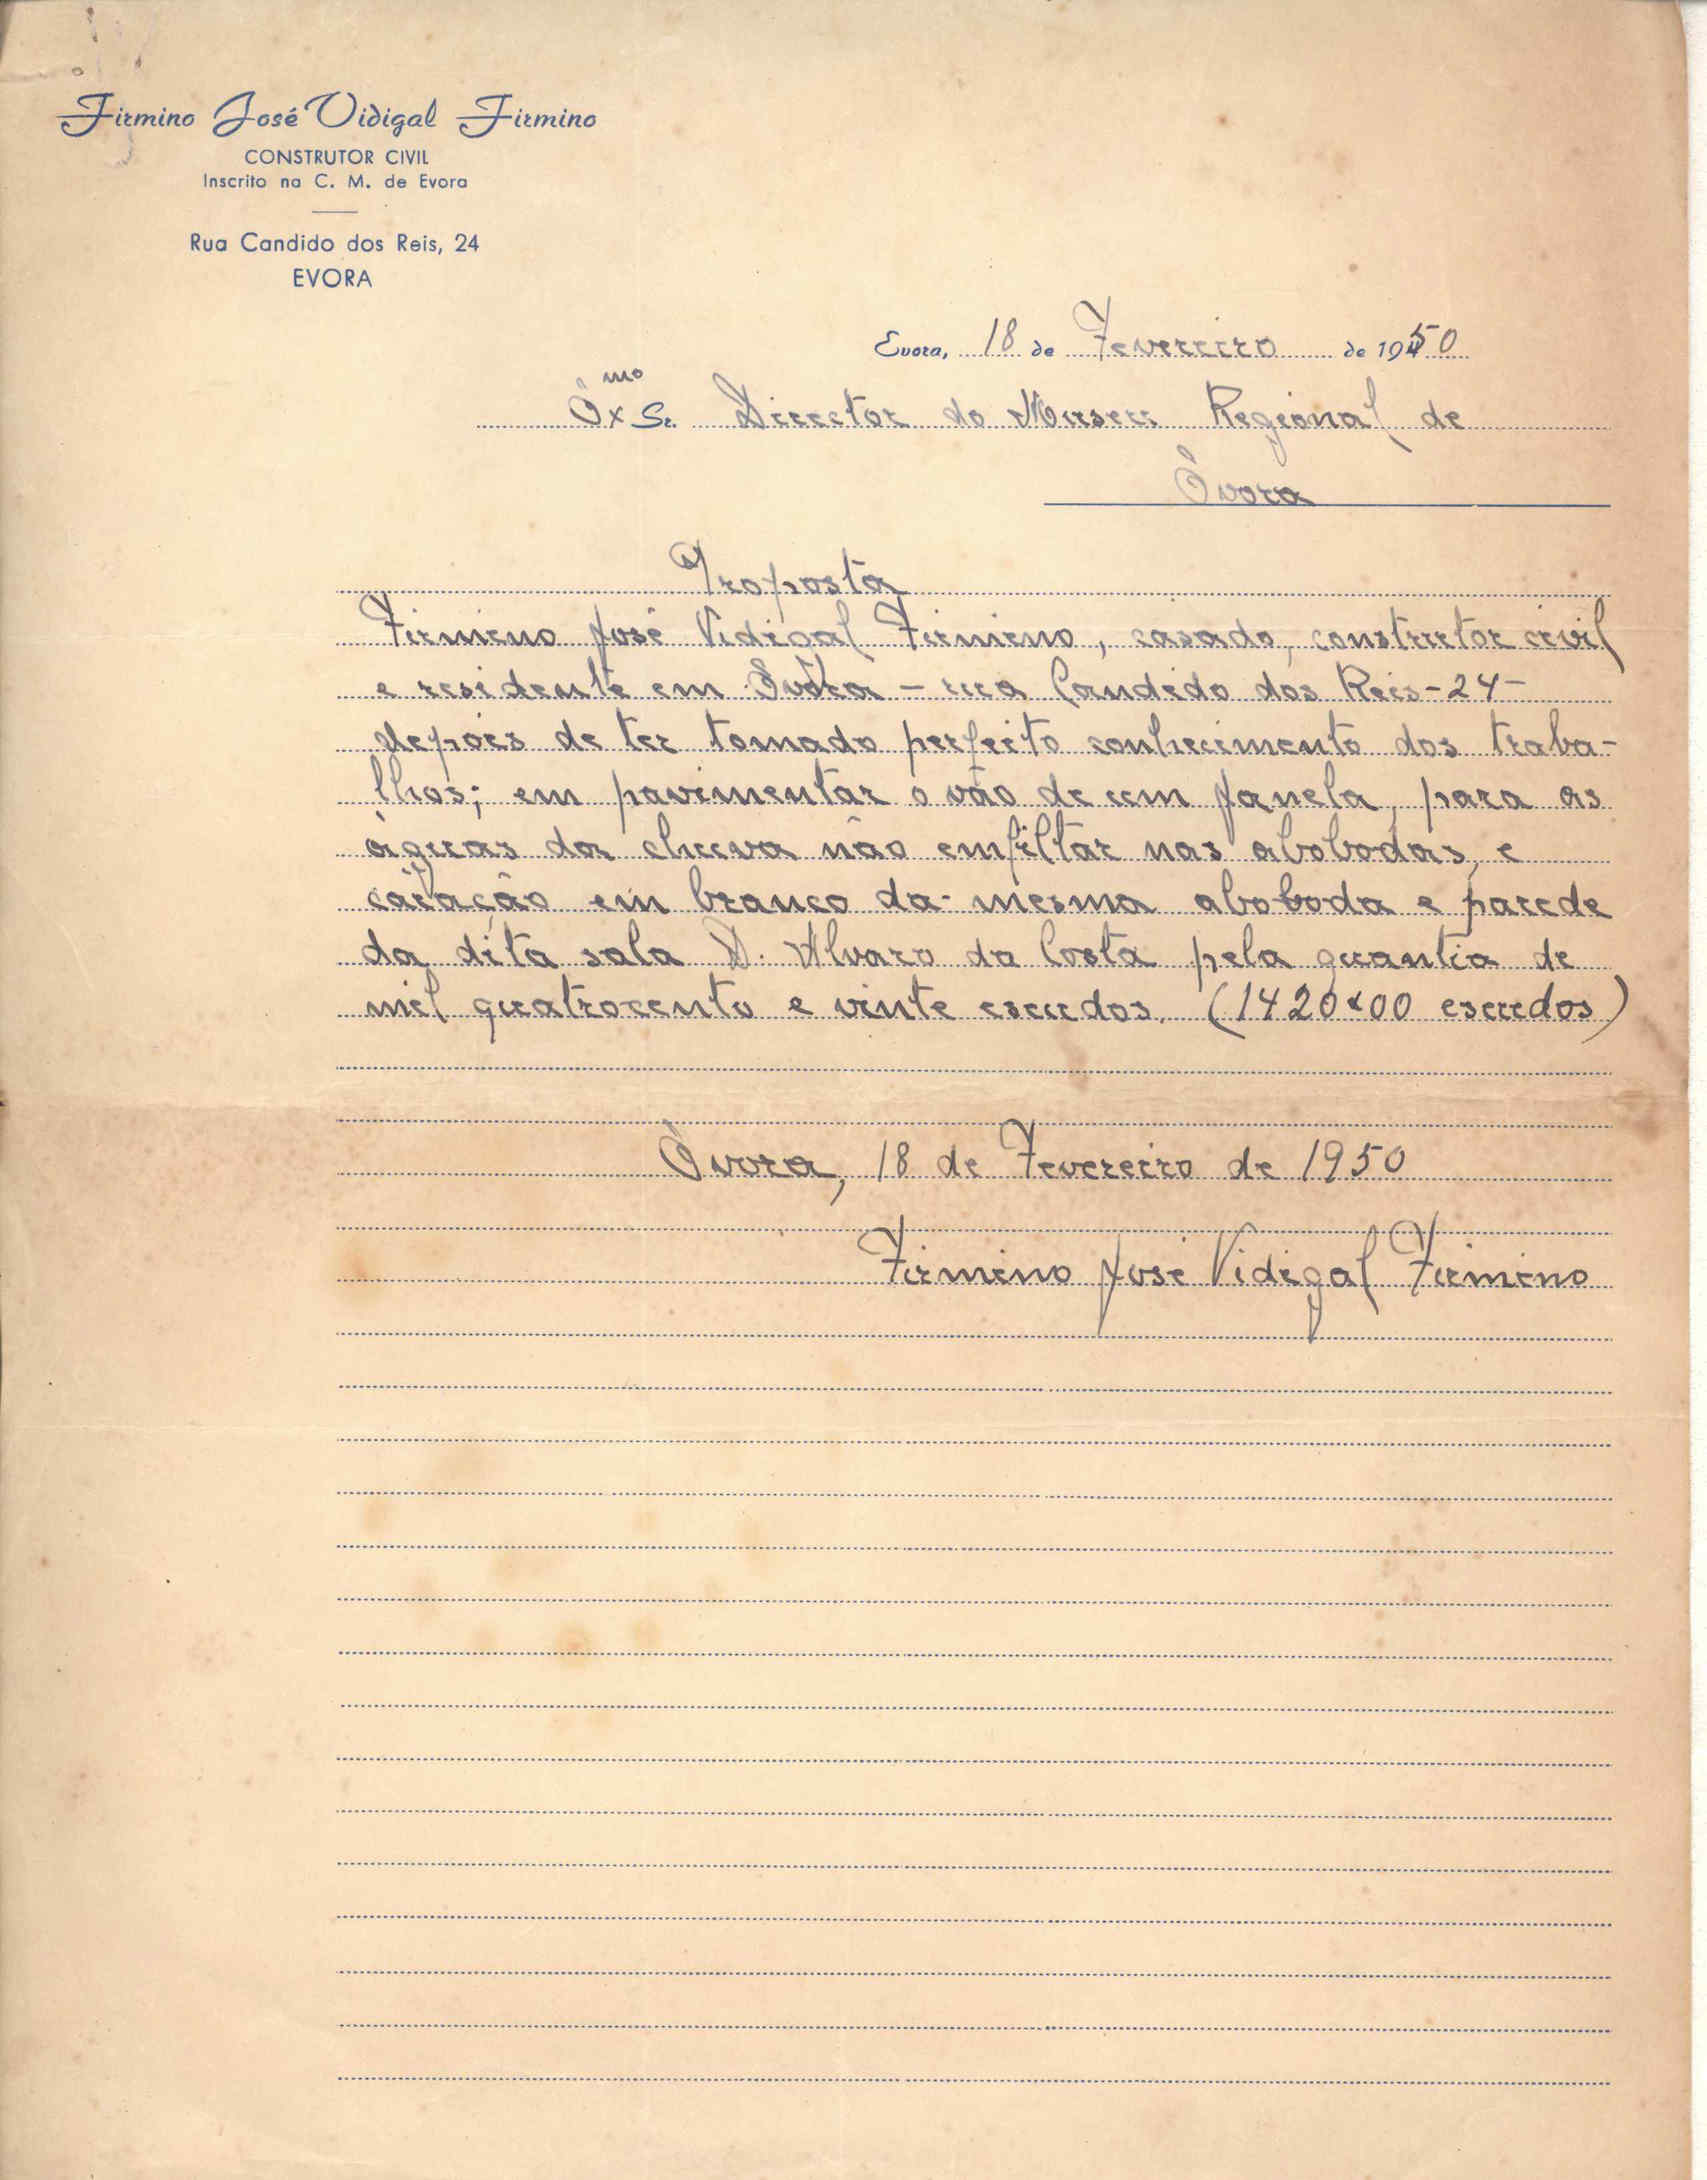 Firmino José Vidigal Firmino
CONSTRUTOR CIVIL
Inscrito na C. M. de Evora
Rua Candido dos Reis, 24
EVORA
Evora, 18 de Fevereiro de 1950
Exmo Sr. Director do Museu Regional de
Évora
Proposta
Firmino José Vidigal Firmino, casado, construtor civil
e residente em Évora - rua Candido dos Reis - 24 -
depois de ter tomado perfeito conhecimento dos traba-
lhos; em pavimentar o vão de um janela, para as
águas da chuva não enfiltar nas abobodas, e
caiação em branco da mesma aboboda e parede
da dita sala D. Alvaro da Costa pela quantia de
mil quatrocento e vinte escudos. (1420$00 escudos)
Évora, 18 de Fevereiro de 1950
Firmino José Vidigal Firmino